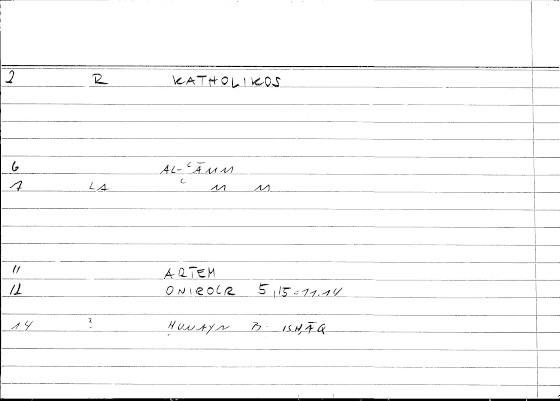 2 R KATHOLIKOS
6 AL-ʿĀMM
7 LA ʿ " "
11 ARTEM
12 ONIROCR 5,15 = 11.14
14 ? ḤUNAYN B. ISḤĀQ